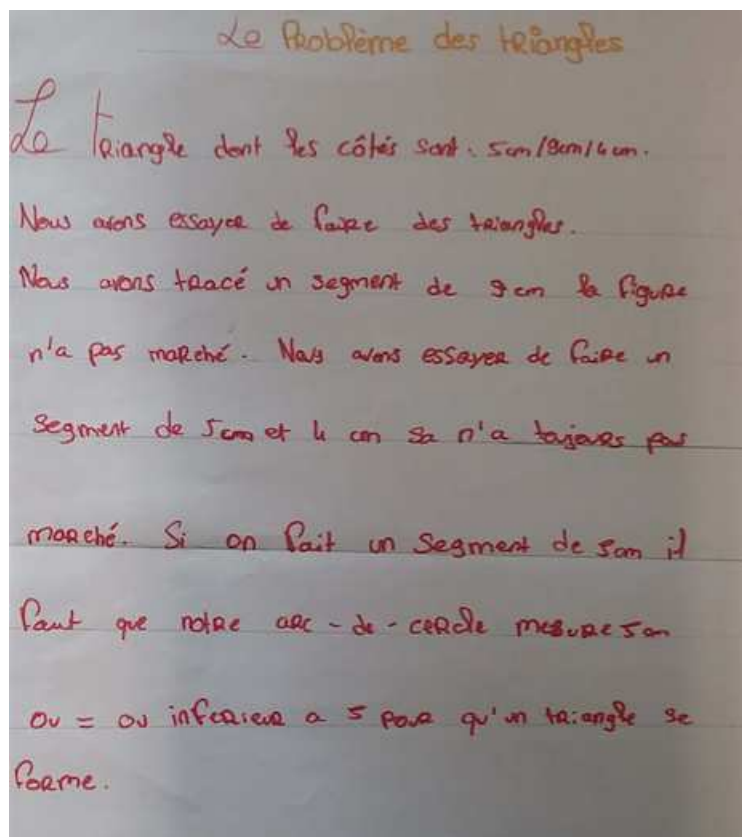 Le Problème des triangles
Le triangle dont les côtés sont : 5cm/9cm/4cm.
Nous avons essayer de faire des triangles.
Nous avons tracé un segment de 9cm la figure
n'a pas marché. Nous avons essayer de faire un
segment de 5cm et 4 cm sa n'a toujours pas
marché. Si on fait un segment de 5cm il
faut que notre arc-de-cercle mesure 5cm
ou = ou inferieur a 5 pour qu'un triangle se
forme.